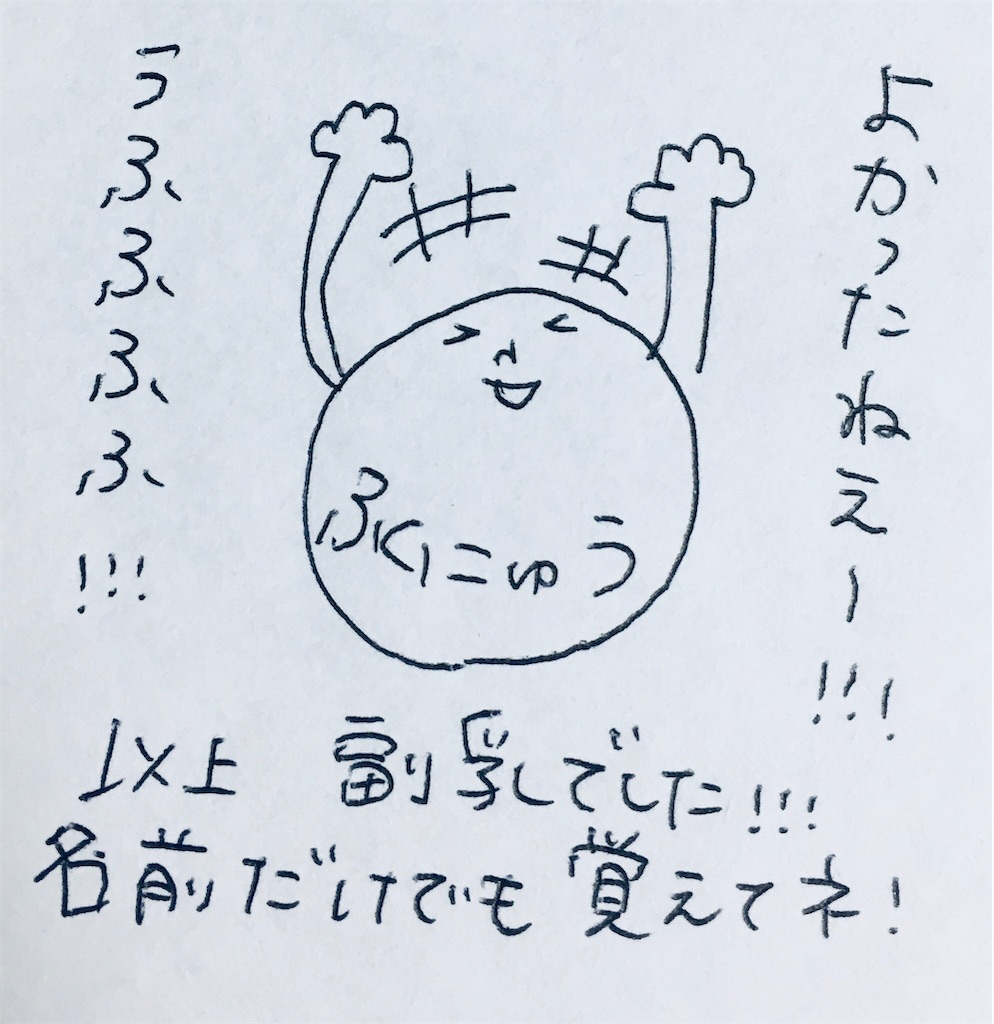 よかったねえー!!!
うふふふふ!!!
ふくにゅう
以上 副乳でした!!!
名前だけでも覚えてネ!